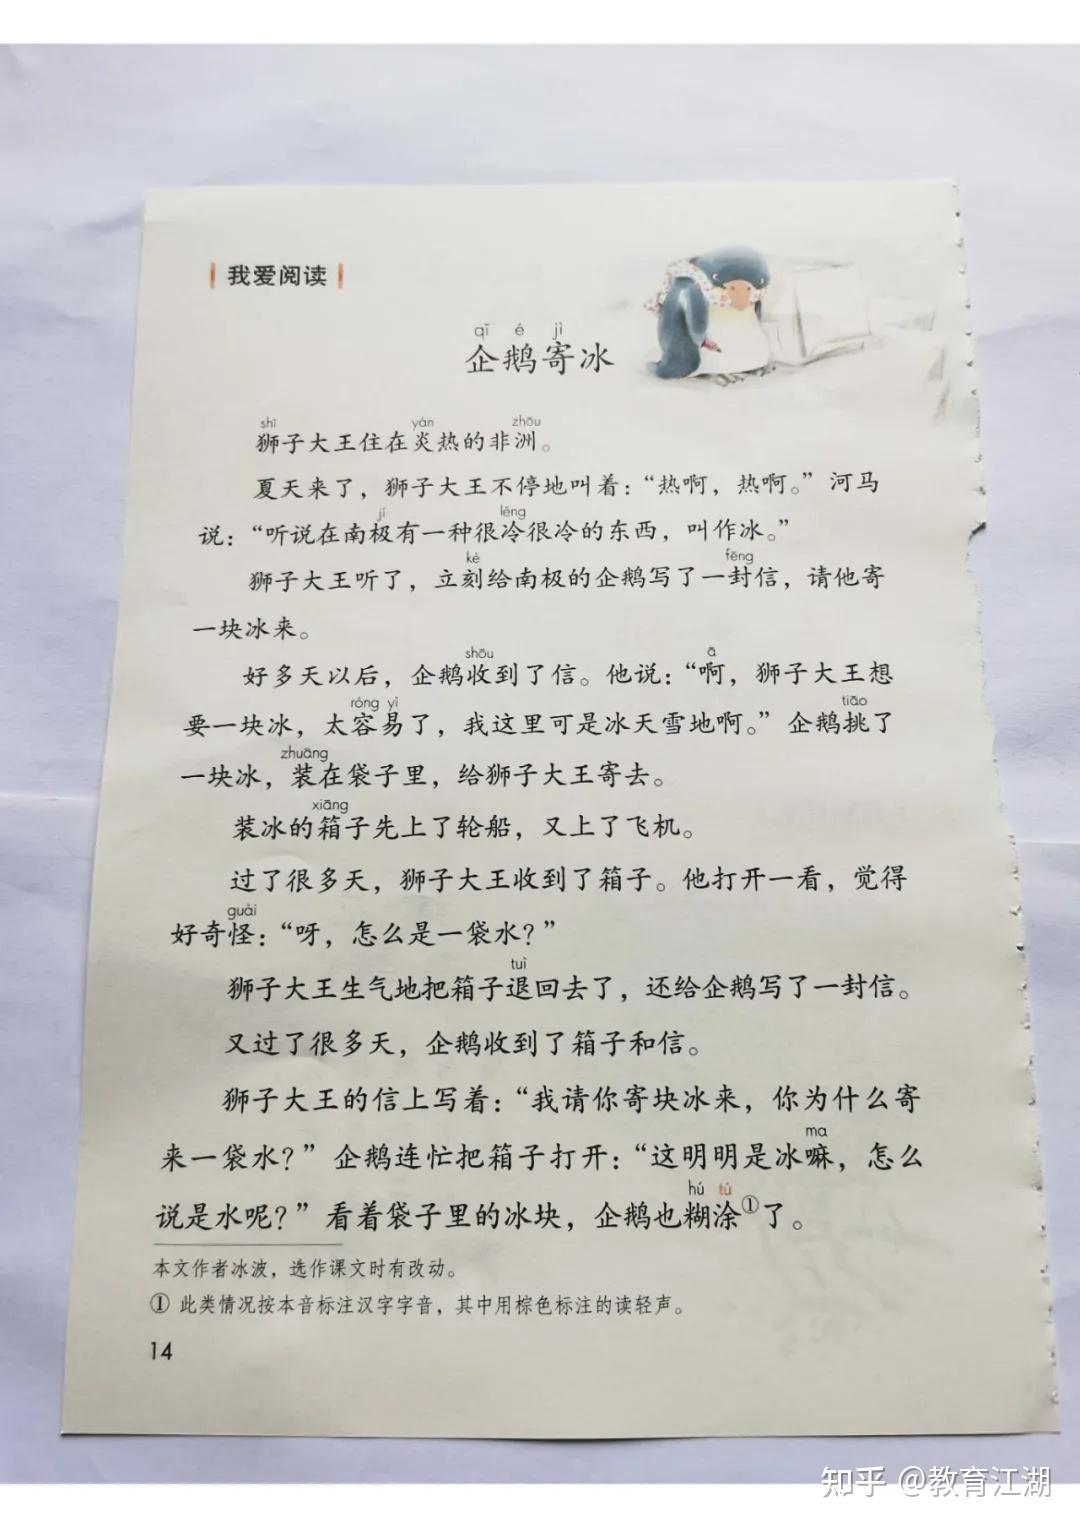 我爱阅读
qǐ é jì
企鹅寄冰
shī yán zhōu
狮子大王住在炎热的非洲。
夏天来了，狮子大王不停地叫着：“热啊，热啊。”河马
jí lěng
说：“听说在南极有一种很冷很冷的东西，叫作冰。”
kè fēng
狮子大王听了，立刻给南极的企鹅写了一封信，请他寄
一块冰来。
shōu ā
好多天以后，企鹅收到了信。他说：“啊，狮子大王想
róng yì tiāo
要一块冰，太容易了，我这里可是冰天雪地啊。”企鹅挑了
zhuāng
一块冰，装在袋子里，给狮子大王寄去。
xiāng
装冰的箱子先上了轮船，又上了飞机。
过了很多天，狮子大王收到了箱子。他打开一看，觉得
guài
好奇怪：“呀，怎么是一袋水？”
tuì
狮子大王生气地把箱子退回去了，还给企鹅写了一封信。
又过了很多天，企鹅收到了箱子和信。
狮子大王的信上写着：“我请你寄块冰来，你为什么寄
ma
来一袋水？”企鹅连忙把箱子打开：“这明明是冰嘛，怎么
hú tú
说是水呢？”看着袋子里的冰块，企鹅也糊涂①了。
本文作者冰波，选作课文时有改动。
① 此类情况按本音标注汉字字音，其中用棕色标注的读轻声。
14
知乎 @教育江湖